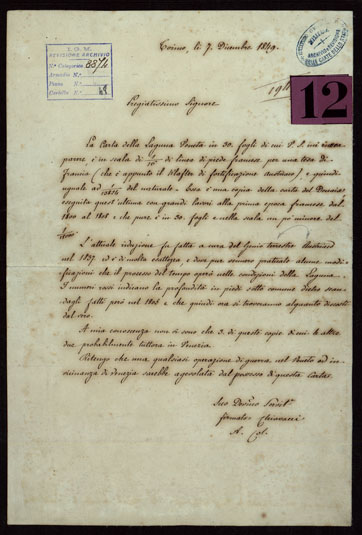 I. G. M.
REVISIONE ARCHIVIO
N.° Categorico 8874
Armadio N.°
Piano N.°
Cartella N.°
Torino, li 7. Dicembre 1849.
12
Pregiatissimo Signore
La Carta della Laguna Veneta in 30. fogli di cui V. S. mi
porre, è in scala di di linea di piede francese per una tesa di
Francia (che è appunto il Klafter di fortificazione Austriaco) e quindi
uguale ad del naturale. Essa è una copia della carta del Denaix
eseguita quest'ultima con grande lavori alla prima epoca francese dal
1810 al 1811 e che pure è in 30. fogli e nella scala un po' minore del
L'attuale riduzione fu fatta a cura del Genio terrestre Austriaco
nel 1837. ed è di molta esattezza, e deve pur essersi praticate alcune modi-
ficazioni che il processo del tempo operò nelle condizioni della Laguna.
I numeri rossi indicano la profondità in piedi sotto comune dietro scan-
dagli fatti però nel 1805 e che quindi ora si troveranno alquanto discosti
dal vero.
A mia conoscenza non vi sono che 3. di queste copie di cui le altre
due probabilmente tuttora in Venezia.
Ritengo che una qualsiasi operazione di guerra nel Veneto ad in
vicinanza di Venezia sarebbe agevolata dal possesso di questa Carta.
Suo Devmo
firmato: Chiavacci